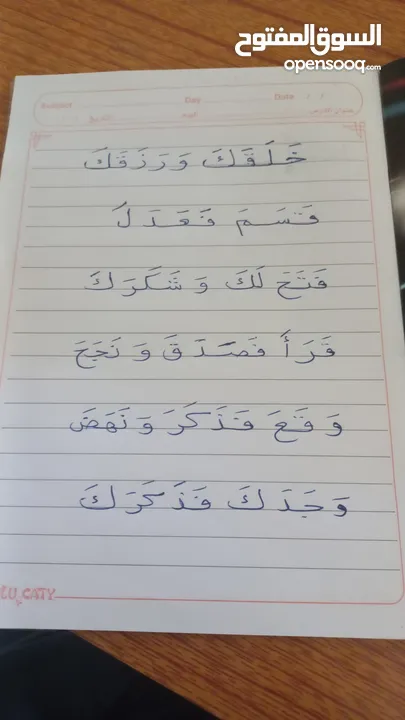 السوق المفتوح
opensooq.com
Subject
Day
Date / /
اليوم
التاريخ
خَلَقَكَ وَرَزَقَكَ
قَسَمَ فَعَدَلَ
فَتَحَ لَكَ وَشَكَرَكَ
قَرَأَ فَصَدَقَ وَنَجَحَ
وَقَعَ فَذَكَرَ وَنَهَضَ
وَجَدَكَ فَذَكَرَكَ